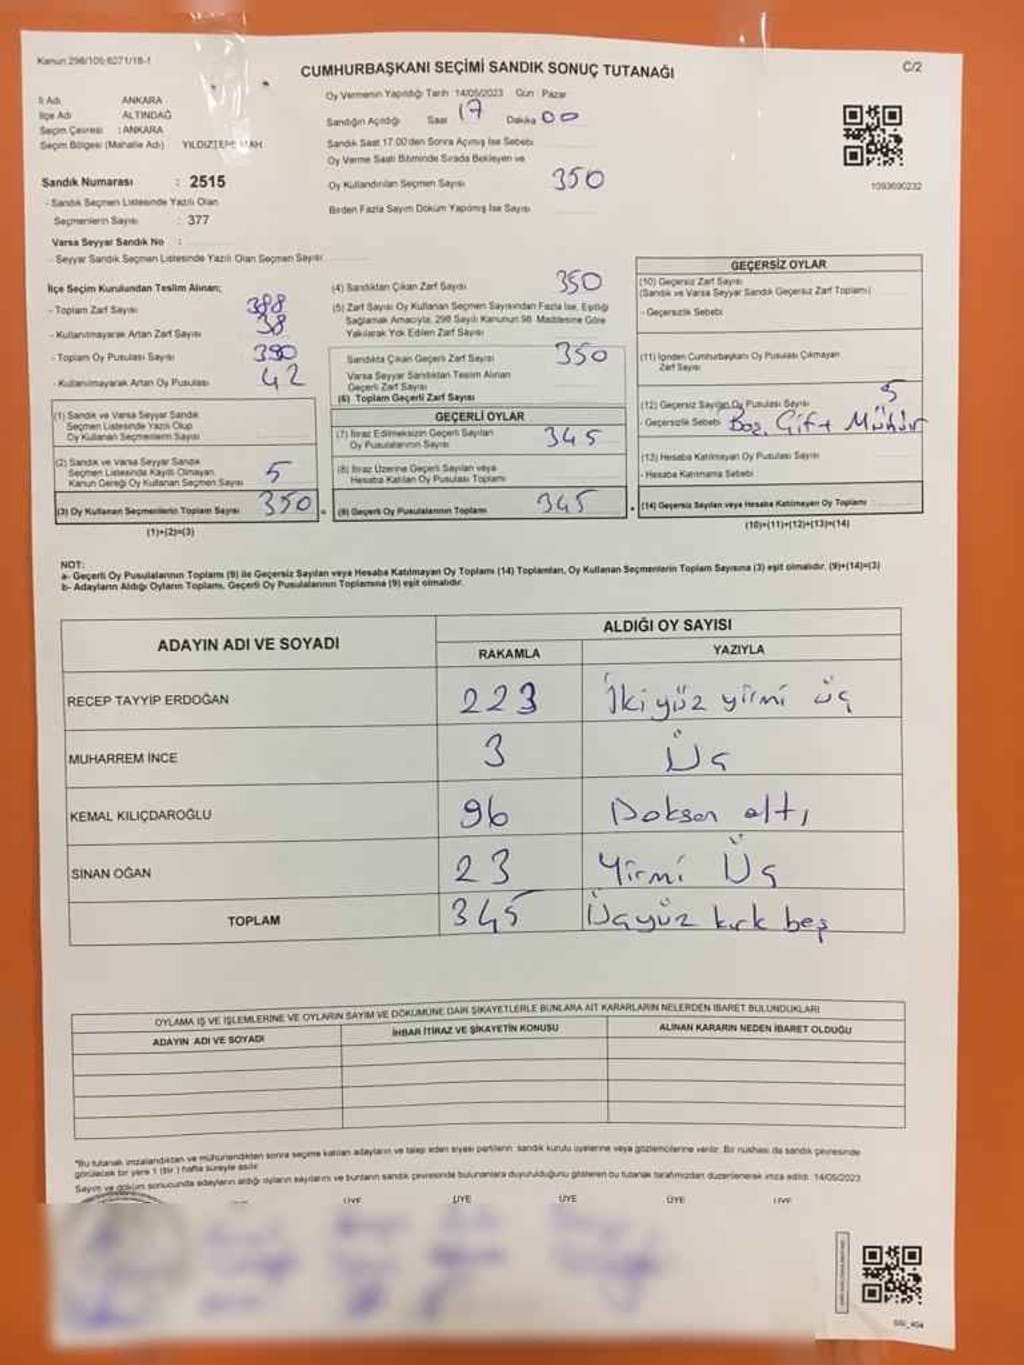 Kanun 298/105;6271/18-1
CUMHURBAŞKANI SEÇİMİ SANDIK SONUÇ TUTANAĞI
C/2
İl Adı ANKARA
İlçe Adı ALTINDAĞ
Seçim Çevresi : ANKARA
Seçim Bölgesi (Mahalle Adı) YILDIZTEPE MAH.
Oy Vermenin Yapıldığı Tarih 14/05/2023 Gün : Pazar
Sandığın Açıldığı Saat 17 Dakika 00
Sandık Saat 17.00'den Sonra Açılmış İse Sebebi
Oy Verme Saati Bitiminde Sırada Bekleyen ve
Oy Kullandırılan Seçmen Sayısı 350
Birden Fazla Sayım Döküm Yapılmış İse Sayısı
1093690232
Sandık Numarası : 2515
- Sandık Seçmen Listesinde Yazılı Olan
Seçmenlerin Sayısı : 377
Varsa Seyyar Sandık No :
- Seyyar Sandık Seçmen Listesinde Yazılı Olan Seçmen Sayısı
İlçe Seçim Kurulundan Teslim Alınan;
- Toplam Zarf Sayısı 388
- Kullanılmayarak Artan Zarf Sayısı 38
- Toplam Oy Pusulası Sayısı 390
- Kullanılmayarak Artan Oy Pusulası 42
(1) Sandık ve Varsa Seyyar Sandık
Seçmen Listesinde Yazılı Olup
Oy Kullanan Seçmenlerin Sayısı
(2) Sandık ve Varsa Seyyar Sandık
Seçmen Listesinde Kayıtlı Olmayan
Kanun Gereği Oy Kullanan Seçmen Sayısı 5
(3) Oy Kullanan Seçmenlerin Toplam Sayısı 350 =
(1)+(2)=(3)
(4) Sandıktan Çıkan Zarf Sayısı 350
(5) Zarf Sayısı Oy Kullanan Seçmen Sayısından Fazla İse, Eşitliği
Sağlamak Amacıyla, 298 Sayılı Kanunun 98. Maddesine Göre
Yakılarak Yok Edilen Zarf Sayısı
Sandıkta Çıkan Geçerli Zarf Sayısı 350
Varsa Seyyar Sandıktan Teslim Alınan
Geçerli Zarf Sayısı
(6) Toplam Geçerli Zarf Sayısı
GEÇERLİ OYLAR
(7) İtiraz Edilmeksizin Geçerli Sayılan
Oy Pusulalarının Sayısı 345
(8) İtiraz Üzerine Geçerli Sayılan veya
Hesaba Katılan Oy Pusulası Toplamı
(9) Geçerli Oy Pusulalarının Toplamı 345
GEÇERSİZ OYLAR
(10) Geçersiz Zarf Sayısı
(Sandık ve Varsa Seyyar Sandık Geçersiz Zarf Toplamı)
- Geçersizlik Sebebi
(11) İçinden Cumhurbaşkanı Oy Pusulası Çıkmayan
Zarf Sayısı
(12) Geçersiz Sayılan Oy Pusulası Sayısı 5
- Geçersizlik Sebebi Boş, Çift Mühür
(13) Hesaba Katılmayan Oy Pusulası Sayısı
- Hesaba Katılmama Sebebi
(14) Geçersiz Sayılan veya Hesaba Katılmayan Oy Toplamı
(10)+(11)+(12)+(13)=(14)
NOT:
a- Geçerli Oy Pusulalarının Toplamı (9) ile Geçersiz Sayılan veya Hesaba Katılmayan Oy Toplamı (14) Toplamları, Oy Kullanan Seçmenlerin Toplam Sayısına (3) eşit olmalıdır. (9)+(14)=(3)
b- Adayların Aldığı Oyların Toplamı, Geçerli Oy Pusulalarının Toplamına (9) eşit olmalıdır.
ADAYIN ADI VE SOYADI
ALDIĞI OY SAYISI
RAKAMLA YAZIYLA
RECEP TAYYİP ERDOĞAN 223 İkiyüz yirmi üç
MUHARREM İNCE 3 Üç
KEMAL KILIÇDAROĞLU 96 Doksan altı
SİNAN OĞAN 23 Yirmi Üç
TOPLAM 345 Üçyüz kırk beş
OYLAMA İŞ VE İŞLEMLERİNE VE OYLARIN SAYIM VE DÖKÜMÜNE DAİR ŞİKAYETLERLE BUNLARA AİT KARARLARIN NELERDEN İBARET BULUNDUKLARI
ADAYIN ADI VE SOYADI İHBAR İTİRAZ VE ŞİKAYETİN KONUSU ALINAN KARARIN NEDEN İBARET OLDUĞU
*Bu tutanak imzalandıktan ve mühürlendikten sonra seçime katılan adayların ve talep eden siyasi partilerin, sandık kurulu üyelerine veya gözlemcilerine verilir. Bir nüshası da sandık çevresinde
görülecek bir yere 1 (Bir ) hafta süreyle asılır.
Sayım ve döküm sonucunda adayların aldığı oyların sayılarını ve bunların sandık çevresinde bulunanlara duyurulduğunu gösteren bu tutanak tarafımızdan düzenlenerek imza edildi. 14/05/2023
ÜYE ÜYE ÜYE ÜYE ÜYE